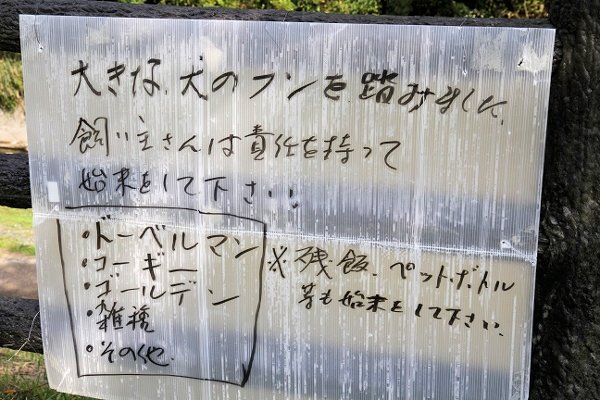 大きな犬のフンを踏みました。
飼い主さんは責任を持って
始末をして下さい!
・ドーベルマン
・コーギー
・ゴールデン
・雑種
・その他
※残飯、ペットボトル
等も始末をして下さい。